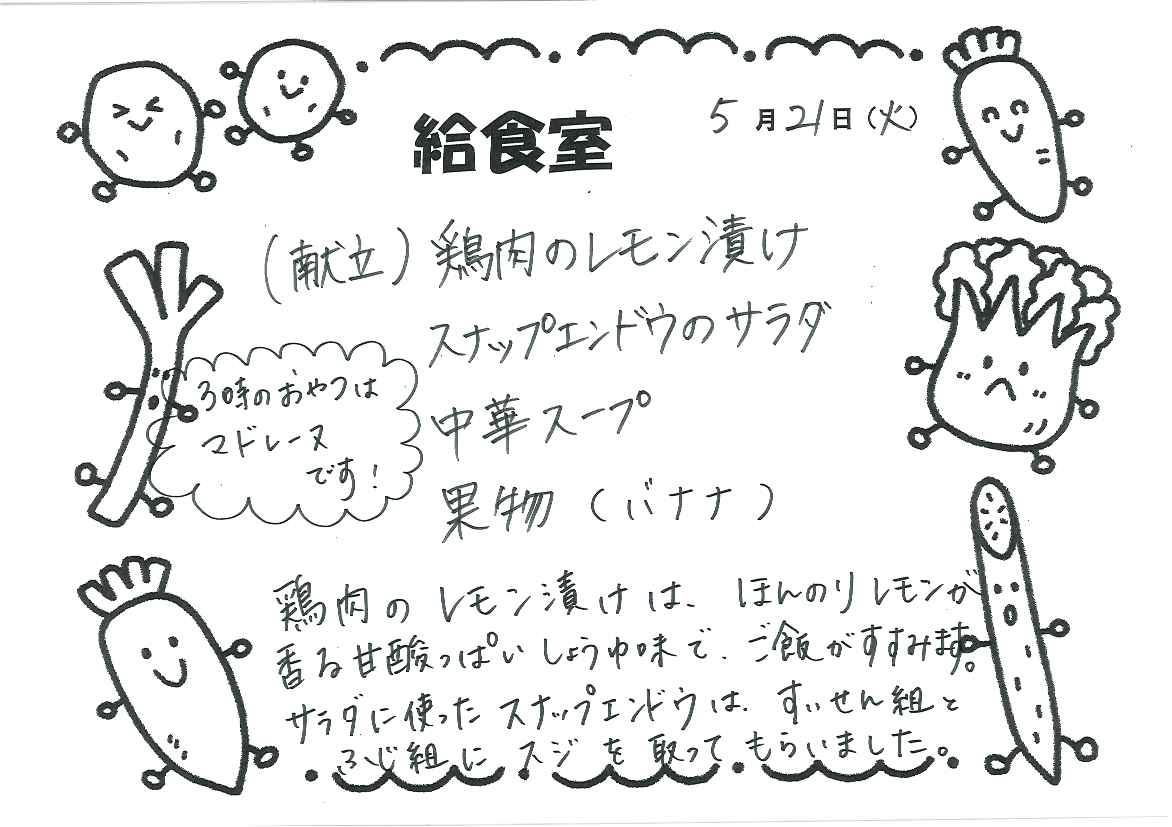 給食室
5月21日(火)
(献立)鶏肉のレモン漬け
スナップエンドウのサラダ
中華スープ
果物(バナナ)
3時のおやつは
マドレーヌ
です!
鶏肉のレモン漬けは、ほんのりレモンが
香る甘酸っぱいしょうゆ味で、ご飯がすすみます。
サラダに使ったスナップエンドウは、すいせん組と
ふじ組にスジを取ってもらいました。